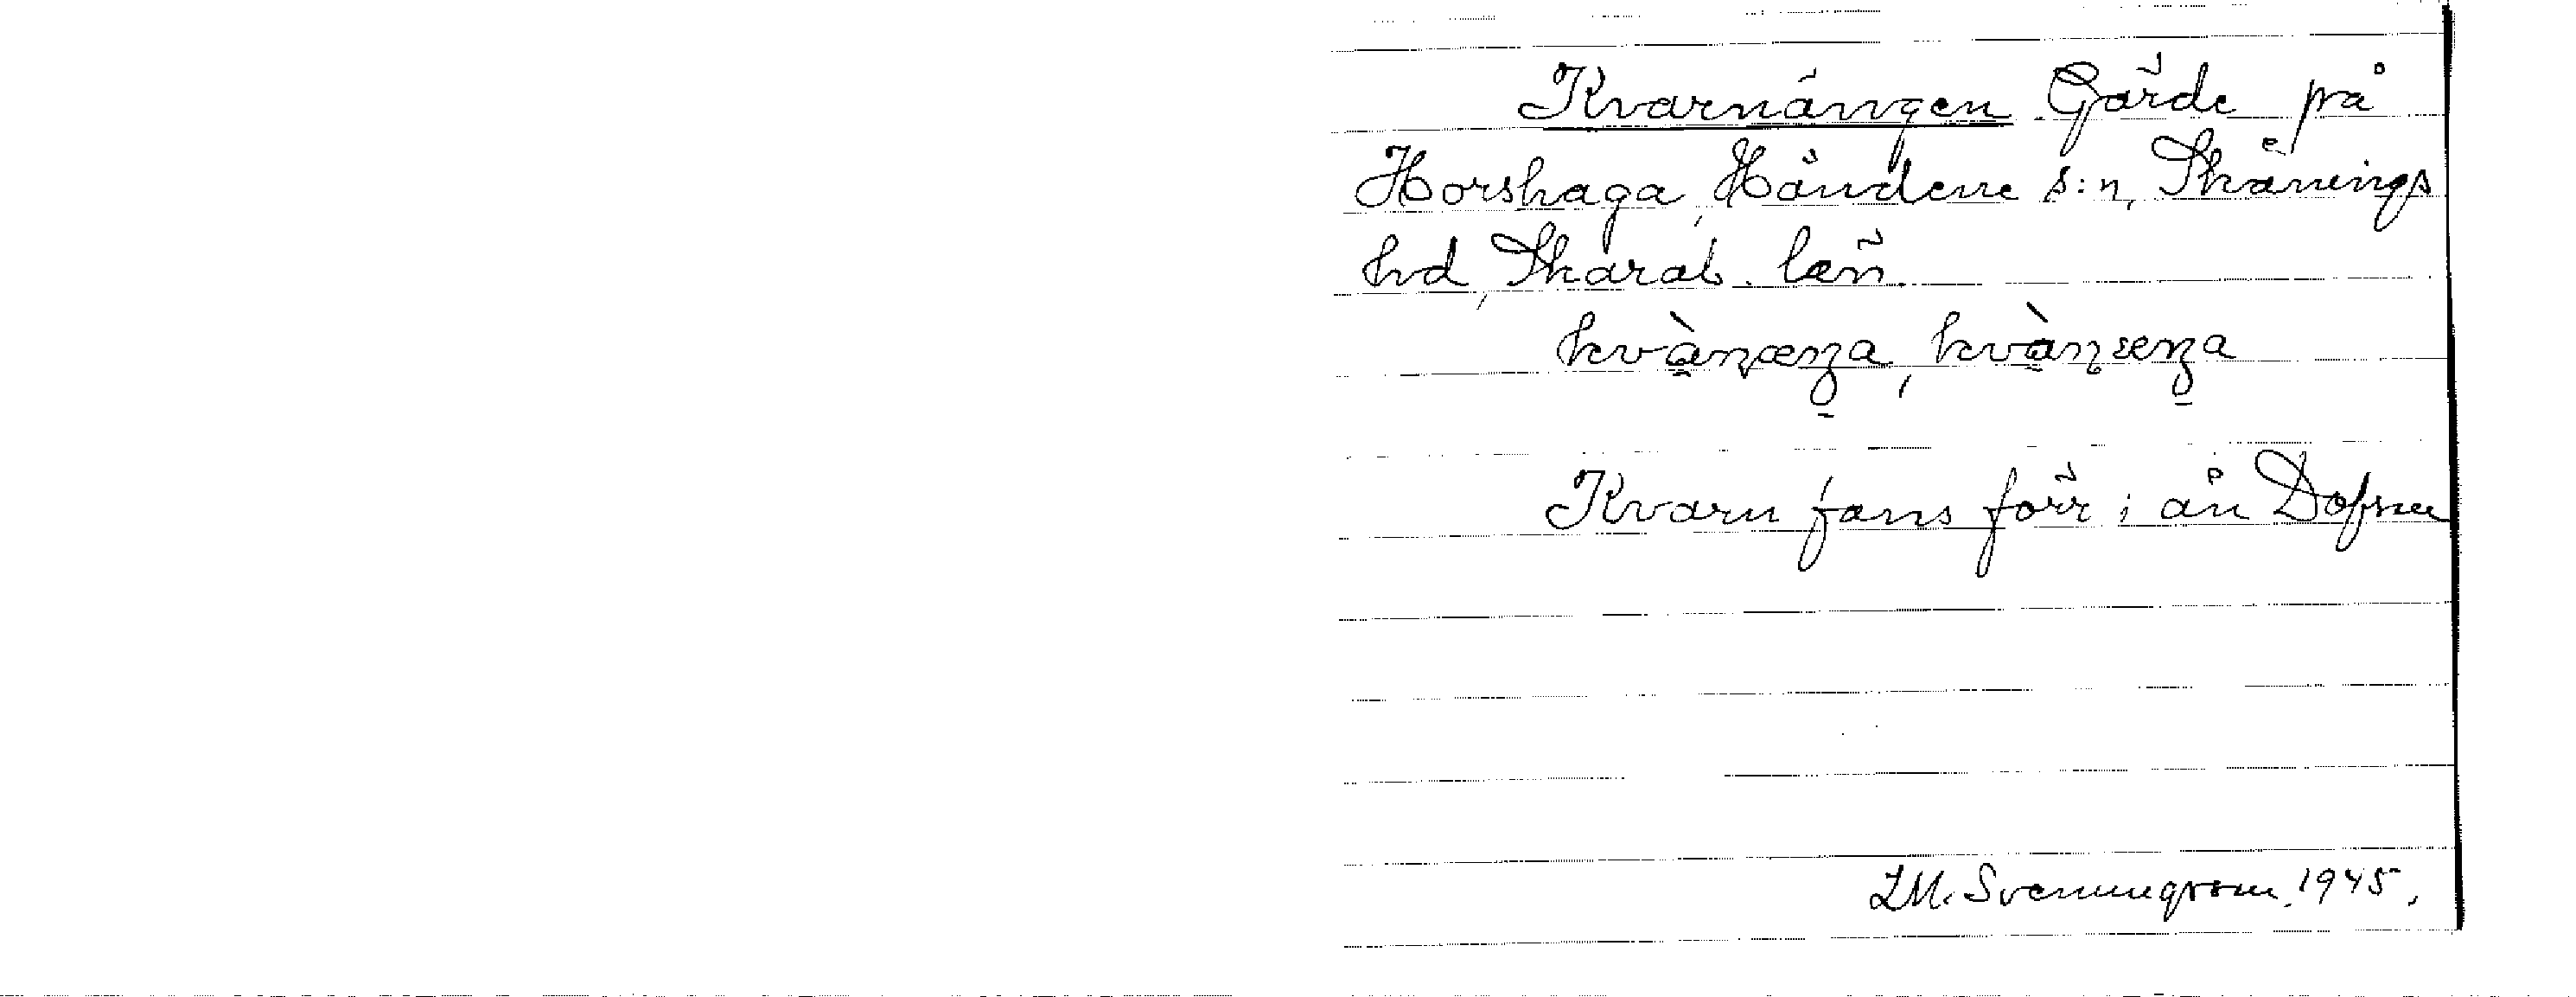 Kvarnängen Gärde på
Horshaga, Händene s:n, Skånings
hd, Skarab. län.
kvànæŋa, kvànæŋa
Kvarn fans förr i ån Dofsan
L.M. Svenungsson 1945.